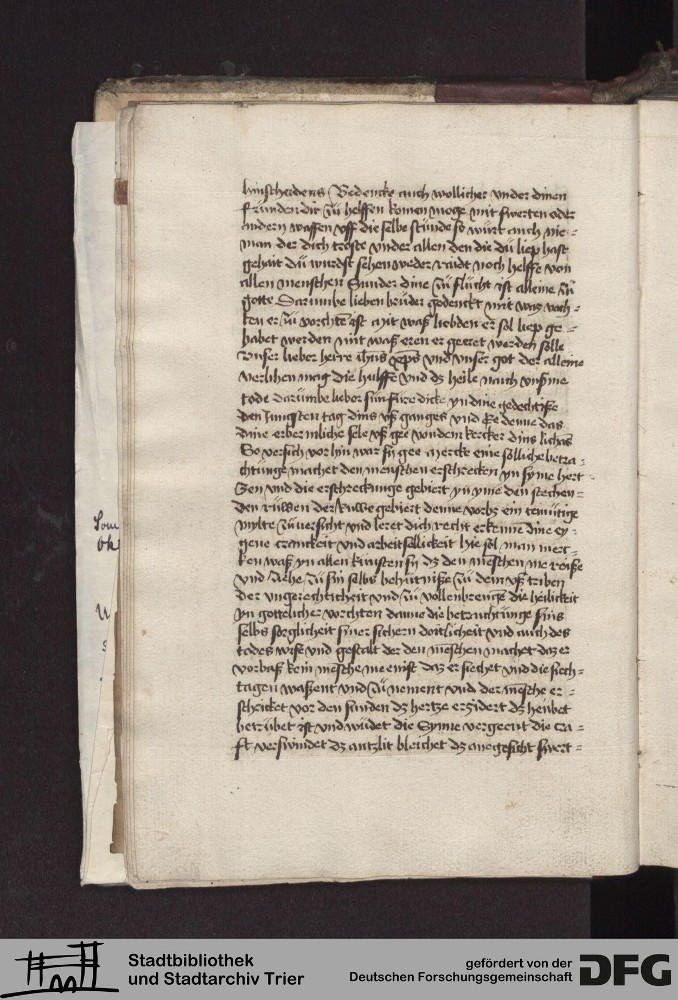 hinscheidens Bedencke auch wollicher vnder dinen
frunden dir zu helffen komen moge mit swerten oder
andern waffen vff die selbe stunde so wurt auch nie=
man der dich troste vnder allen den die du liep hast
gehait du wurdst sehen weder raidt noch helffe von
allen menschen Sunder dine zu flucht ist alleine zu
gotte Darumbe lieben bruder gedenckt mit waz voch=
ten er zu vorchte ist mit waß liebden er sol liep ge=
habet werden mit waß eren er geeret werden solle
Vnser lieber herre ihūs xp̄s vnd vnser got der alleine
verlihen mag die hulffe vnd dz heile nach vnsme
tode darumbe lieber sun fure dicke yn dine gedechtiße
den Jungsten tag dins vß ganges vnd ee denne das
dine erbermliche sele vß gee von dem kercker dins lichās
So versich vor hin war sij gee mercke eine solliche betra=
chtunge machet den menschen erschrecken yn syme hert=
Zen vnd die erschreckunge gebiert yn yme den stechen=
den ruwen der ruwe gebiert denne vorbz ein temutige
mylte zuuersicht vnd leret dich recht erkenne dine ey=
gene cranckeit vnd arbeitsellickeit hie sol man merc=
ken waß yn allen kunsten sij dz den mēschen me reiße
vnd ziehe zu sin selbs behutniße zu dem vß triben
der vngerechticheit vnd zu vollenbrenge die heilickeit
yn gottelicher vorchten danne die betrachtunge sins
selbs sorglicheit siner sichern doitlicheit vnd auch des
todes wise vnd gestalt der den mēschen machet daz er
vorbaß kein mēsche me enist daz er siechet vnd die siech=
tagen waßent vnd zu nement vnd der mēsche er=
schricket vor den sunden dz hertze erzidert dz heubet
betrubet ist vnd wudet die Synne vergeent die cra=
ft verswindet dz antzlit bleichet dz anegesicht swert=
Stadtbibliothek
und Stadtarchiv Trier
gefördert von der
Deutschen Forschungsgemeinschaft
DFG